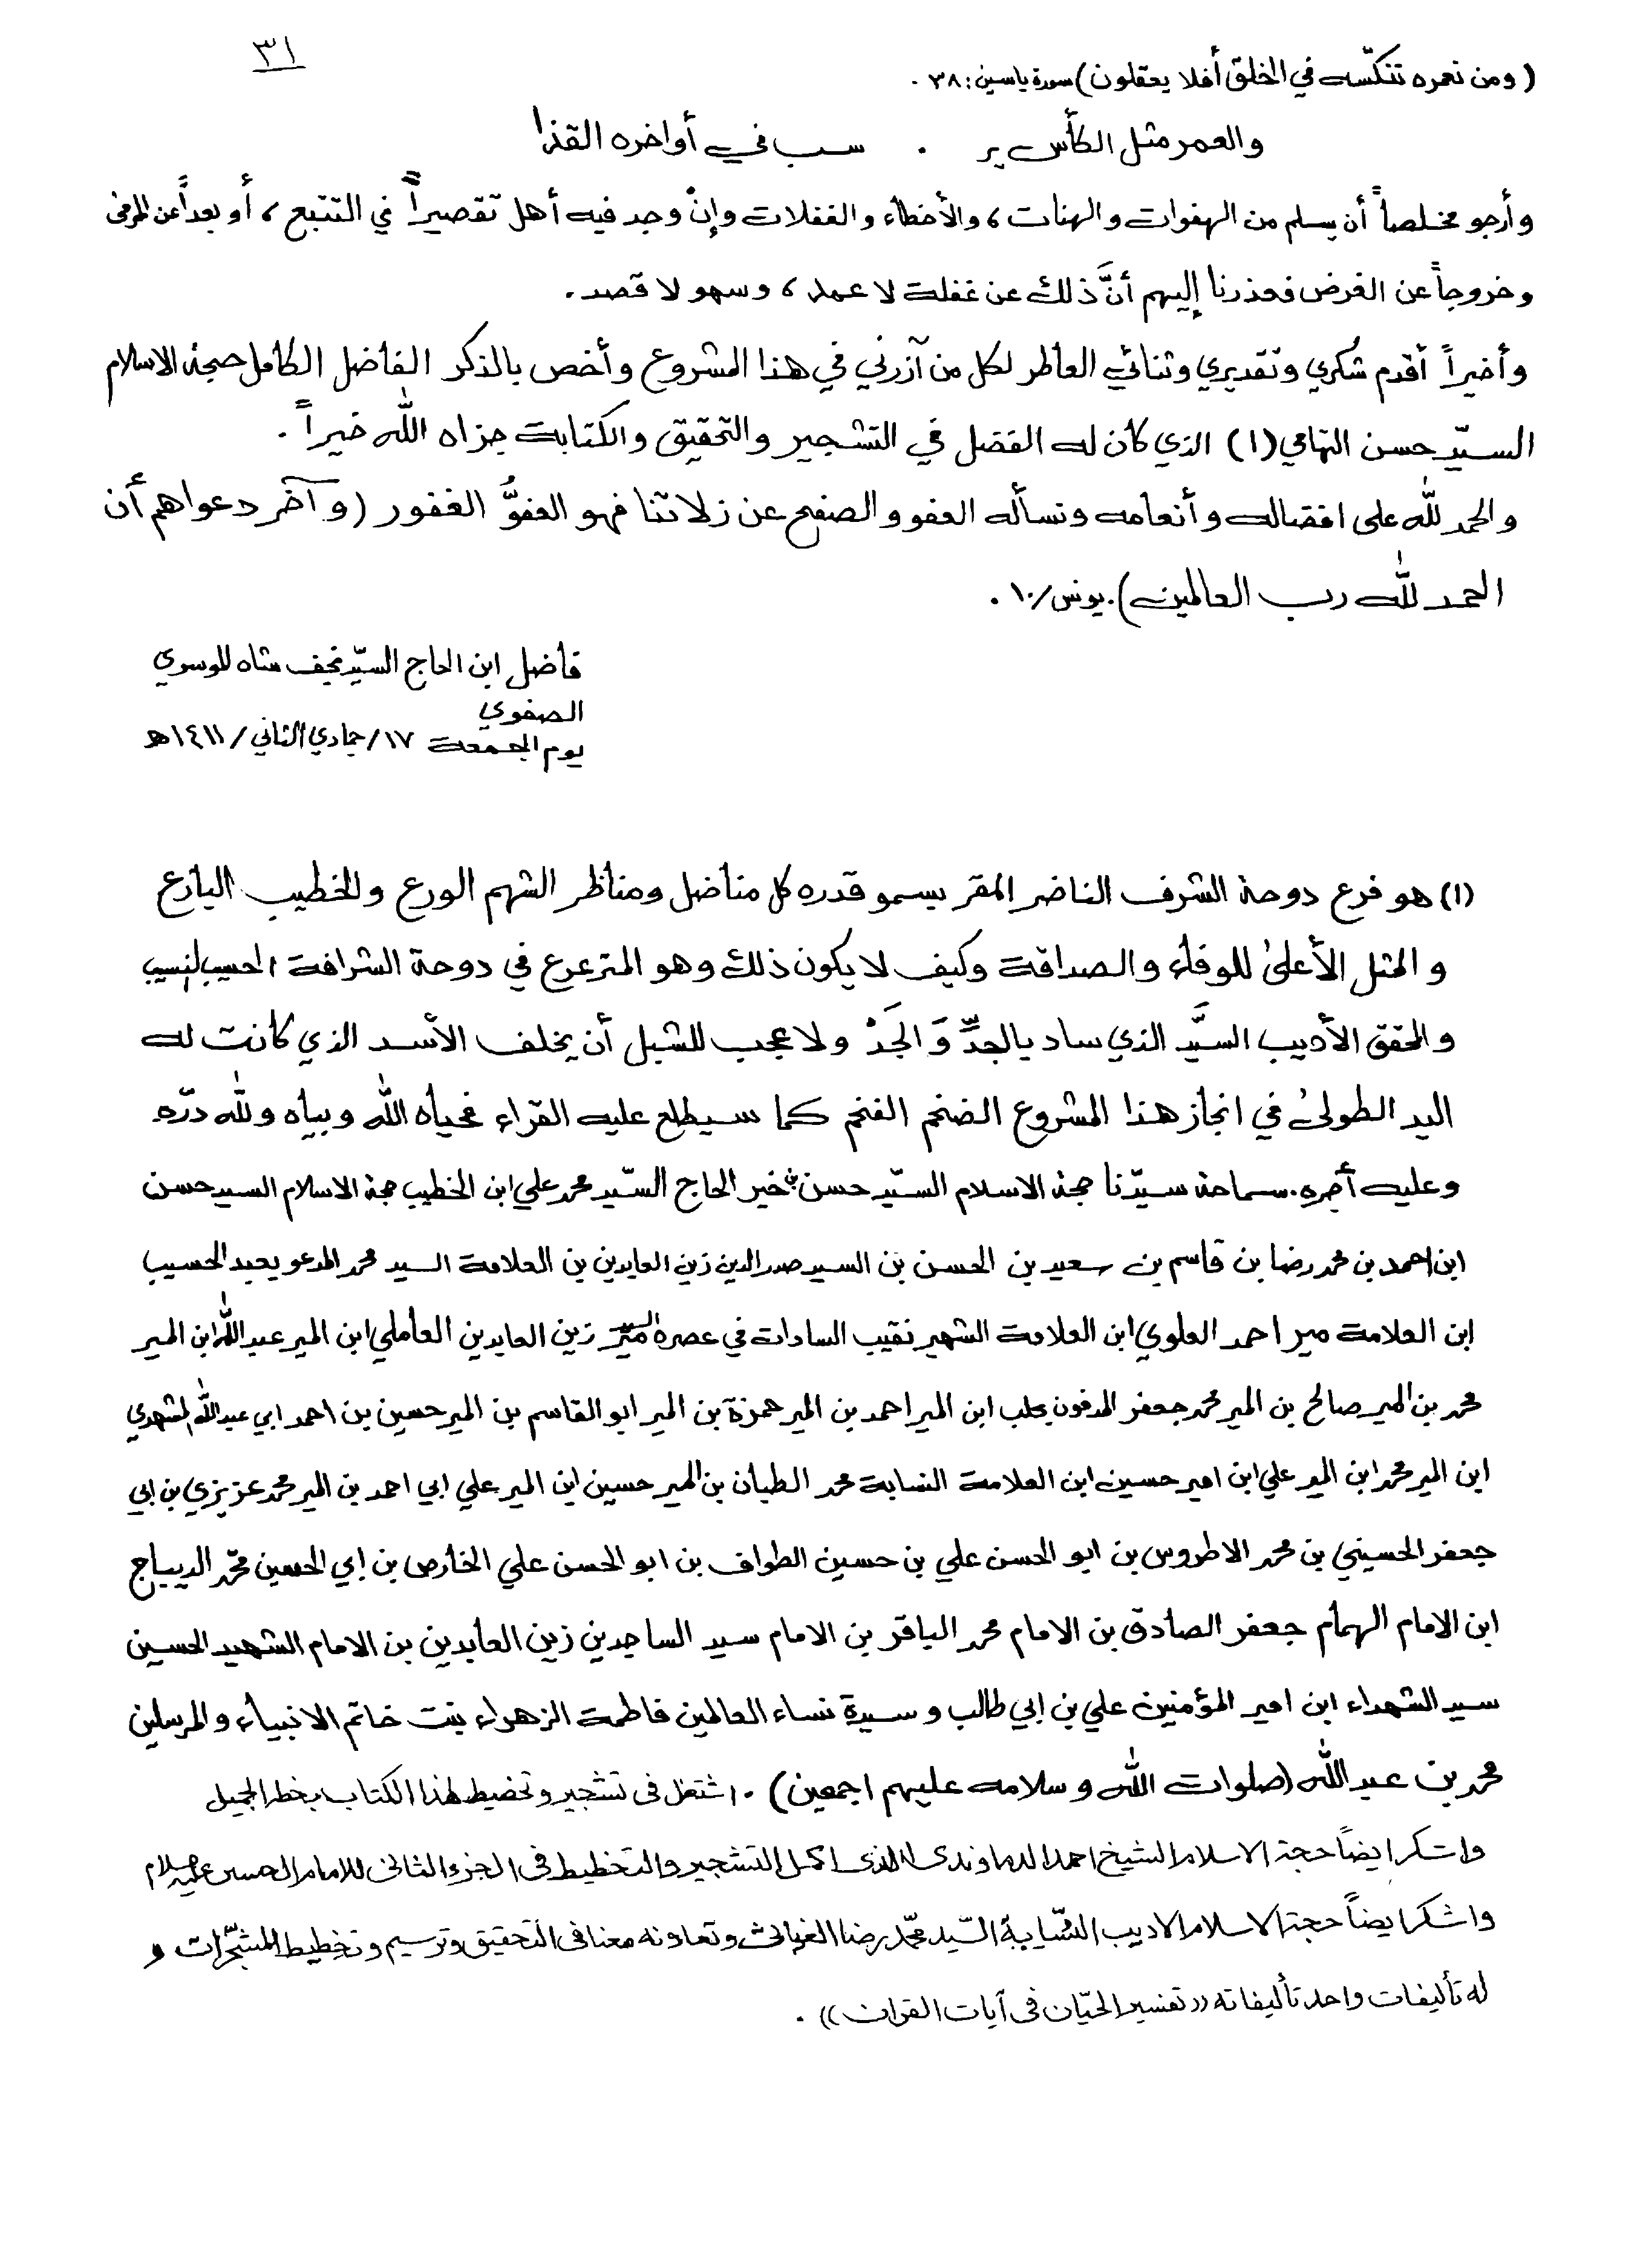 ٣١
(ومن نعمره ننكّسه في الخلق أفلا يعقلون) سورة ياسين: ٣٨ .
والعمر مثل الكأس ير . سب في أواخره القذا
وأرجو مخلصاً أن يسلم من الهفوات والهنات ، والأخطاء والغفلات وإنْ وجد فيه أهل تقصيراً في التتبع ، أو بعداً عن المرمى
وخروجاً عن الغرض فعذرنا إليهم أنَّ ذلك عن غفلة لا عمد ، وسهو لا قصد .
وأخيراً أقدم شكري وتقديري وثنائي العاطر لكل من آزرني في هذا المشروع وأخص بالذكر الفاضل الكامل حجة الاسلام
السيّد حسن التهامي (١) الذي كان له الفضل في التشجير والتحقيق والكتابة جزاه الله خيراً .
والحمد لله على افضاله وأنعامه ونسأله العفو والصفح عن زلاتنا فهو العفوُّ الغفور (وآخر دعواهم أن
الحمد لله رب العالمين). يونس/١٠ .
فاضل ابن الحاج السيّد نجف شاه الموسوي
الصفوي
يوم الجمعة ١٧/ جمادي الثاني / ١٤١١ه
(١) هو فرع دوحة الشرف الناضر المقر بسمو قدره كل مناضل ومناظر الشهم الورع والخطيب البارع
و المثل الأعلىٰ للوفاء والصداقة وكيف لا يكون ذلك وهو المترعرع في دوحة الشرافة الحسيب النسيب
والمحقق الأديب السيَّد الذي ساد بالجدِّ وَ الجَدْ ولا عجب للشبل أن يخلف الأسد الذي كانت له
اليد الطولىٰ في انجاز هذا المشروع الضخم الفخم كما سيطلع عليه القرّاء فحياه الله وبياه ولله درّه
وعليه أجره. سماحة سيّدنا حجة الاسلام السيّد حسن بن خير الحاج السيّد محمد علي ابن الخطيب حجة الاسلام السيد حسن
ابن احمد بن محمد رضا بن قاسم بن سعيد بن الحسن بن السيد صدر الدين زين العابدين بن العلامة السيد محمد المدعو بعبد الحسيب
ابن العلامة مير احمد العلوي ابن العلامة الشهير نقيب السادات في عصره السيد مير زين العابدين العاملي ابن المير عبد الله ابن المير
محمد بن المير صالح بن المير محمد جعفر المدفون بحلب ابن المير احمد بن المير حمزة بن المير ابو القاسم بن المير حسين بن احمد ابي عبد الله المشهدي
ابن المير محمد ابن المير علي ابن امير حسين ابن العلامة النسابة محمد الطيان بن المير حسين ابن المير علي ابي احمد بن المير محمد عزيزي بن ابي
جعفر الحسيني بن محمد الاطروس بن ابو الحسن علي بن حسين الطواف بن ابو الحسن علي الخارص بن إبي الحسين محمّد الديباج
ابن الامام الهمام جعفر الصادق بن الامام محمد الباقر بن الامام سيد الساجدين زين العابدين بن الامام الشهيد الحسين
سيد الشهداء ابن امير المؤمنين علي بن ابي طالب و سيدة نساء العالمين فاطمة الزهراء بنت خاتم الانبياء والمرسلين
محمد بن عبد الله (صلوات الله وسلامه عليهم اجمعين) . اشتغل فى تشجير وتخضيط لهذا الكتاب بخطه الجميل
واشكر ايضاً حجة الاسلام الشيخ احمد الدماوندى الذى اكمل التشجير والتخطيط فى الجزء الثانى للامام الحسين عليه السلام
واشكر ايضاً حجة الاسلام الاديب النسّابة السّيد محمّد رضا الغريانى وتعاونه معنا فى التحقيق وترسيم وتخطيط المشجّرات و
له تأليفات واحد تأليفاته ((تفسير الحيّان فى آيات القرآن)) .